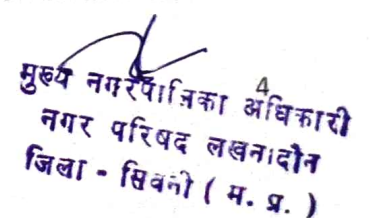 4
मुख्य नगरपालिका अधिकारी
नगर परिषद लखनादौन
जिला - सिवनी ( म. प्र. )